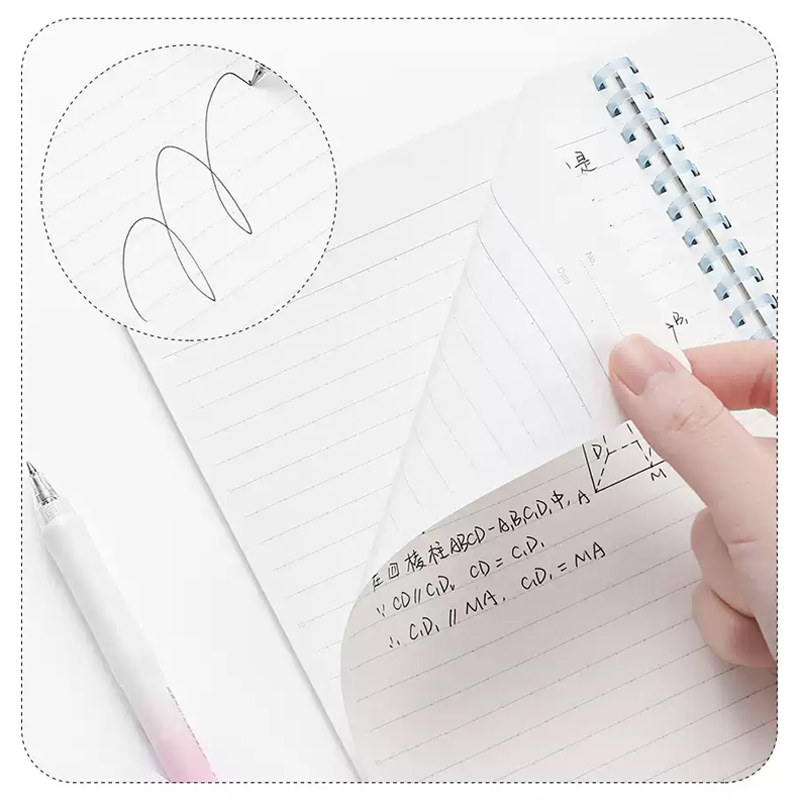 是
No.
Date
B₁
D
A
M
在四棱柱ABCD-A₁B₁C₁D₁中,
∵ CD∥C₁D₁, CD=C₁D₁
∴ C₁D₁∥MA, C₁D₁=MA